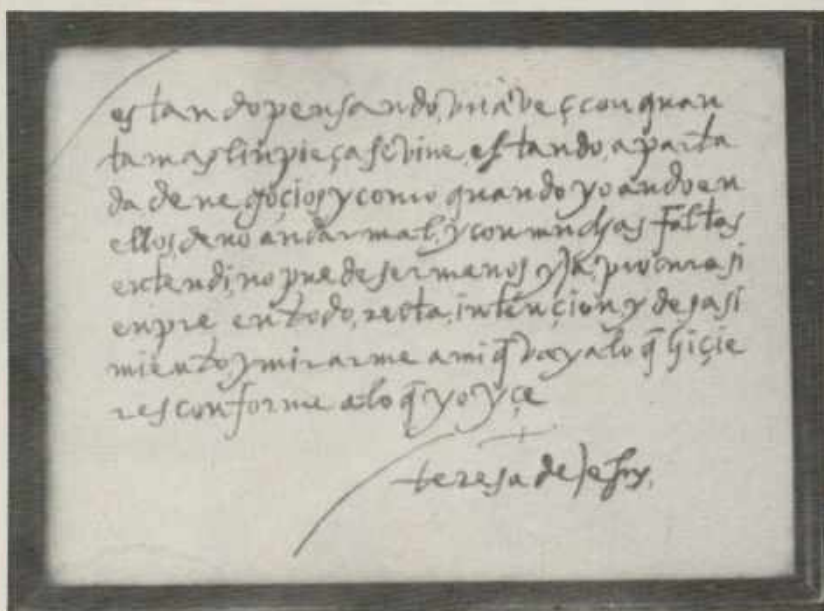 estando pensando, una veç con quan
ta mas linpieça se vive, estando, aparta
da de negoçios y como quando yo ando en
ellos, devo andar mal, y con muchas faltas
entendi, no puede ser menos yja, procura si
enpre en todo, reta, intençion, y desasi
miento y mirarme a mi q̄ vaya lo q̄ hiçie
res conforme a lo q̄ yo yçe
teresa de Jesus,